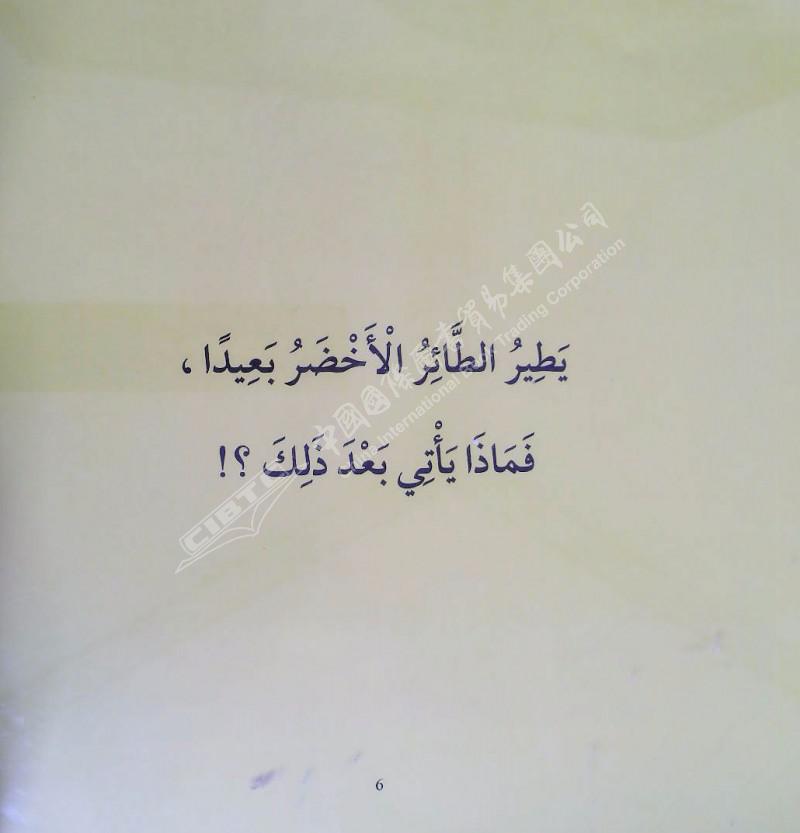 يَطِيرُ الطَّائِرُ الْأَخْضَرُ بَعِيدًا ،
فَمَاذَا يَأْتِي بَعْدَ ذَلِكَ ؟!
中國國際圖書貿易集團公司
China International Book Trading Corporation
CIBTC
6